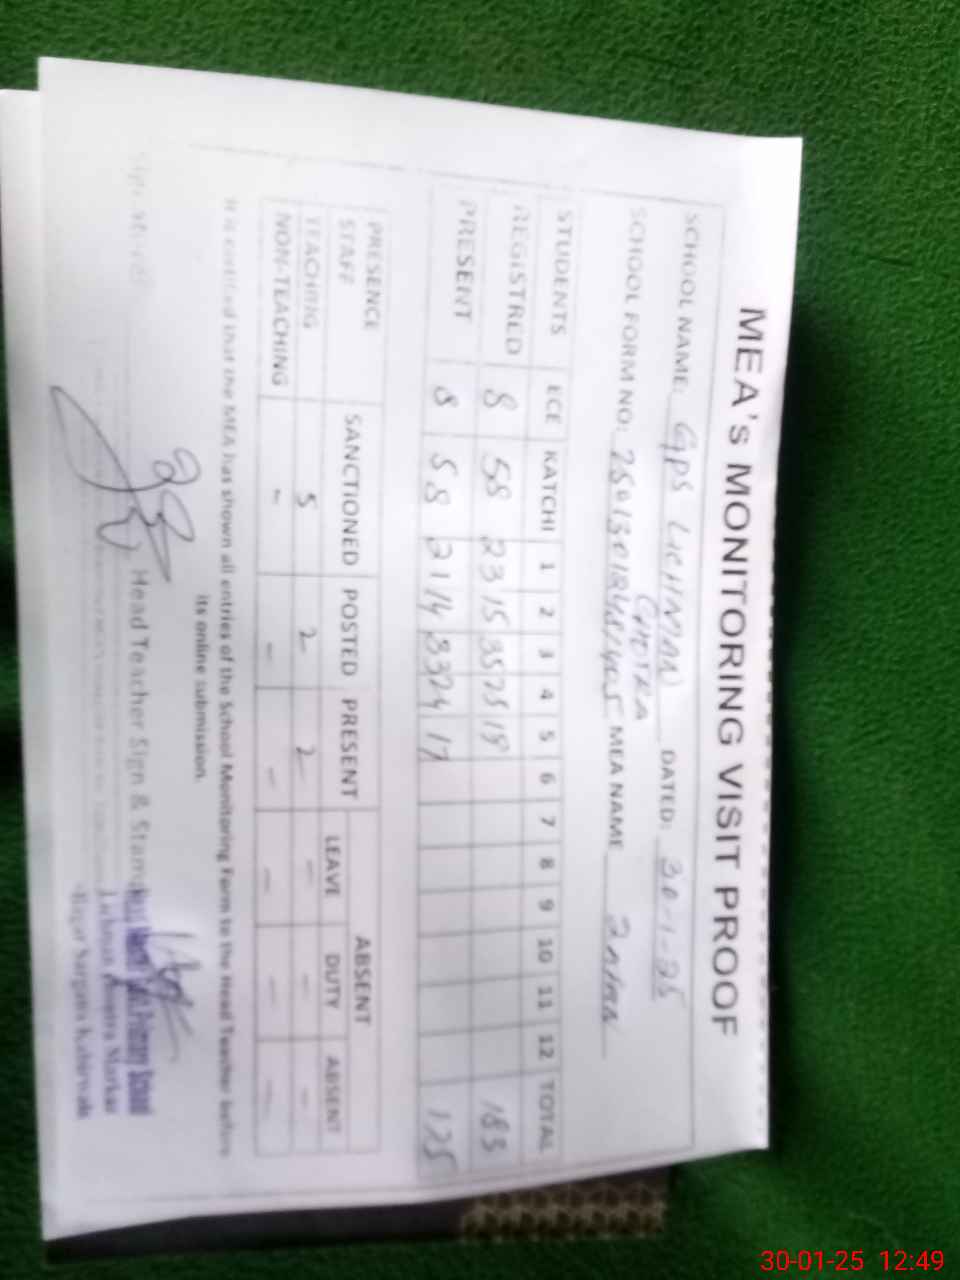 MEA's MONITORING VISIT PROOF
SCHOOL NAME: GPS LICHMAN GHOTRA DATED: 30-1-25
SCHOOL FORM NO: MEA NAME
STUDENTS ECE KATCHI 1 2 3 4 5 6 7 8 9 10 11 12 TOTAL
REGISTRED 8 58 23 15 35 25 19 183
PRESENT 8 58 21 14 33 24 17 175
PRESENCE STAFF SANCTIONED POSTED PRESENT ABSENT
LEAVE DUTY ABSENT
TEACHING 5 2 2 - - -
NON-TEACHING - - - - - -
It is certified that the MEA has shown all entries of the School Monitoring Form to the Head Teacher before
its online submission
Head Teacher Sign & Stamp
Primary School
30-01-25 12:49